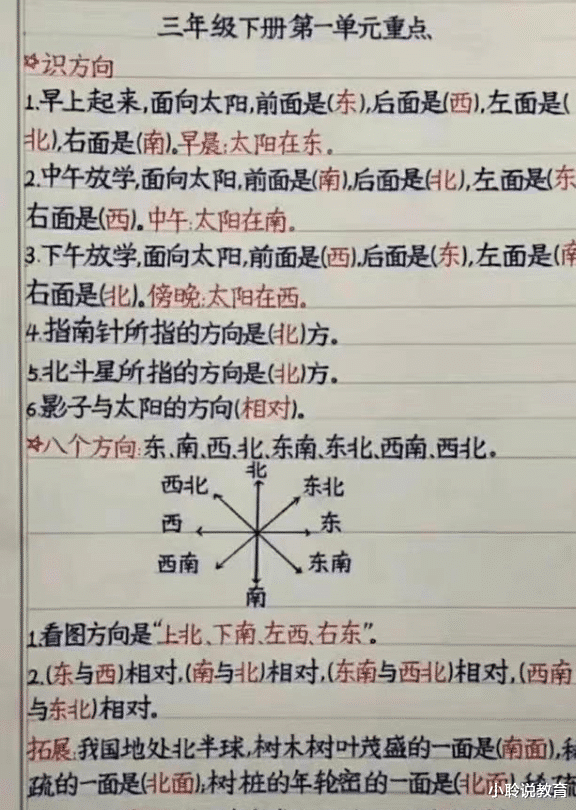 三年级下册第一单元重点、
☆识方向
1.早上起来,面向太阳,前面是(东),后面是(西),左面是(
北),右面是(南)。早晨:太阳在东。
2.中午放学,面向太阳,前面是(南),后面是(北),左面是(东
右面是(西)。中午:太阳在南。
3.下午放学,面向太阳,前面是(西),后面是(东),左面是(南
右面是(北)。傍晚:太阳在西。
4.指南针所指的方向是(北)方。
5.北斗星所指的方向是(北)方。
6.影子与太阳的方向(相对)。
☆八个方向:东、南、西、北、东南、东北、西南、西北。
北
西北 东北
西 东
西南 东南
南
1.看图方向是“上北、下南、左西、右东”。
2.(东与西)相对,(南与北)相对,(东南与西北)相对,(西南
与东北)相对。
拓展:我国地处北半球,树木树叶茂盛的一面是(南面),稀
疏的一面是(北面);树桩的年轮密的一面是(北面),稀疏
小聆说教育